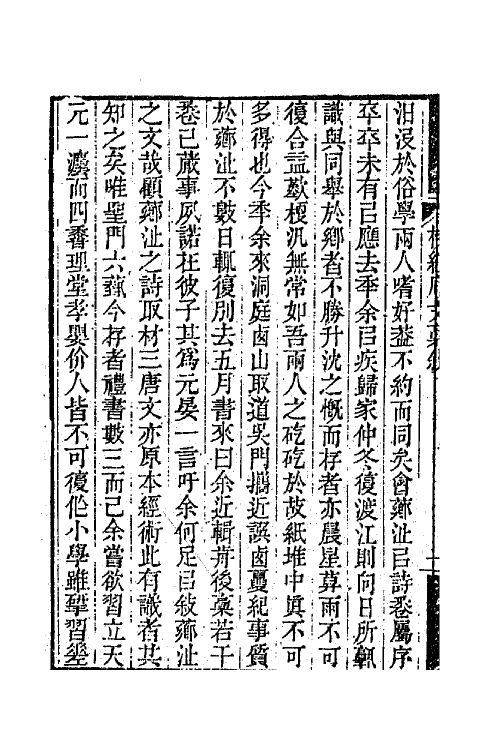 汩沒於俗學兩人嗜好益不約而同矣會薌沚㠯詩卷屬序
卒卒未有㠯應去秊余㠯疾歸家仲冬復渡江則向日所
識與同舉於鄉者不勝升沈之慨而存者亦晨星舊雨不可
復合益歎梗汎無常如吾兩人之矻矻於故紙堆中眞不可
多得也今秊余來洞庭卤山取道吳門攜近譔卤夏紀事質
於薌沚不數日輒復別去五月書來曰余近輯歬後稾若干
卷己蕆事夙諾在彼子其爲元晏一言吁余何足㠯敍薌沚
之文哉顧薌沚之詩取材三唐文亦原本經術此有識者共
知之矣唯聖門六藝今存者禮書數三而己余嘗欲習立天
元一瀘而四香理堂孝嬰价人皆不可復作小學雖肄習